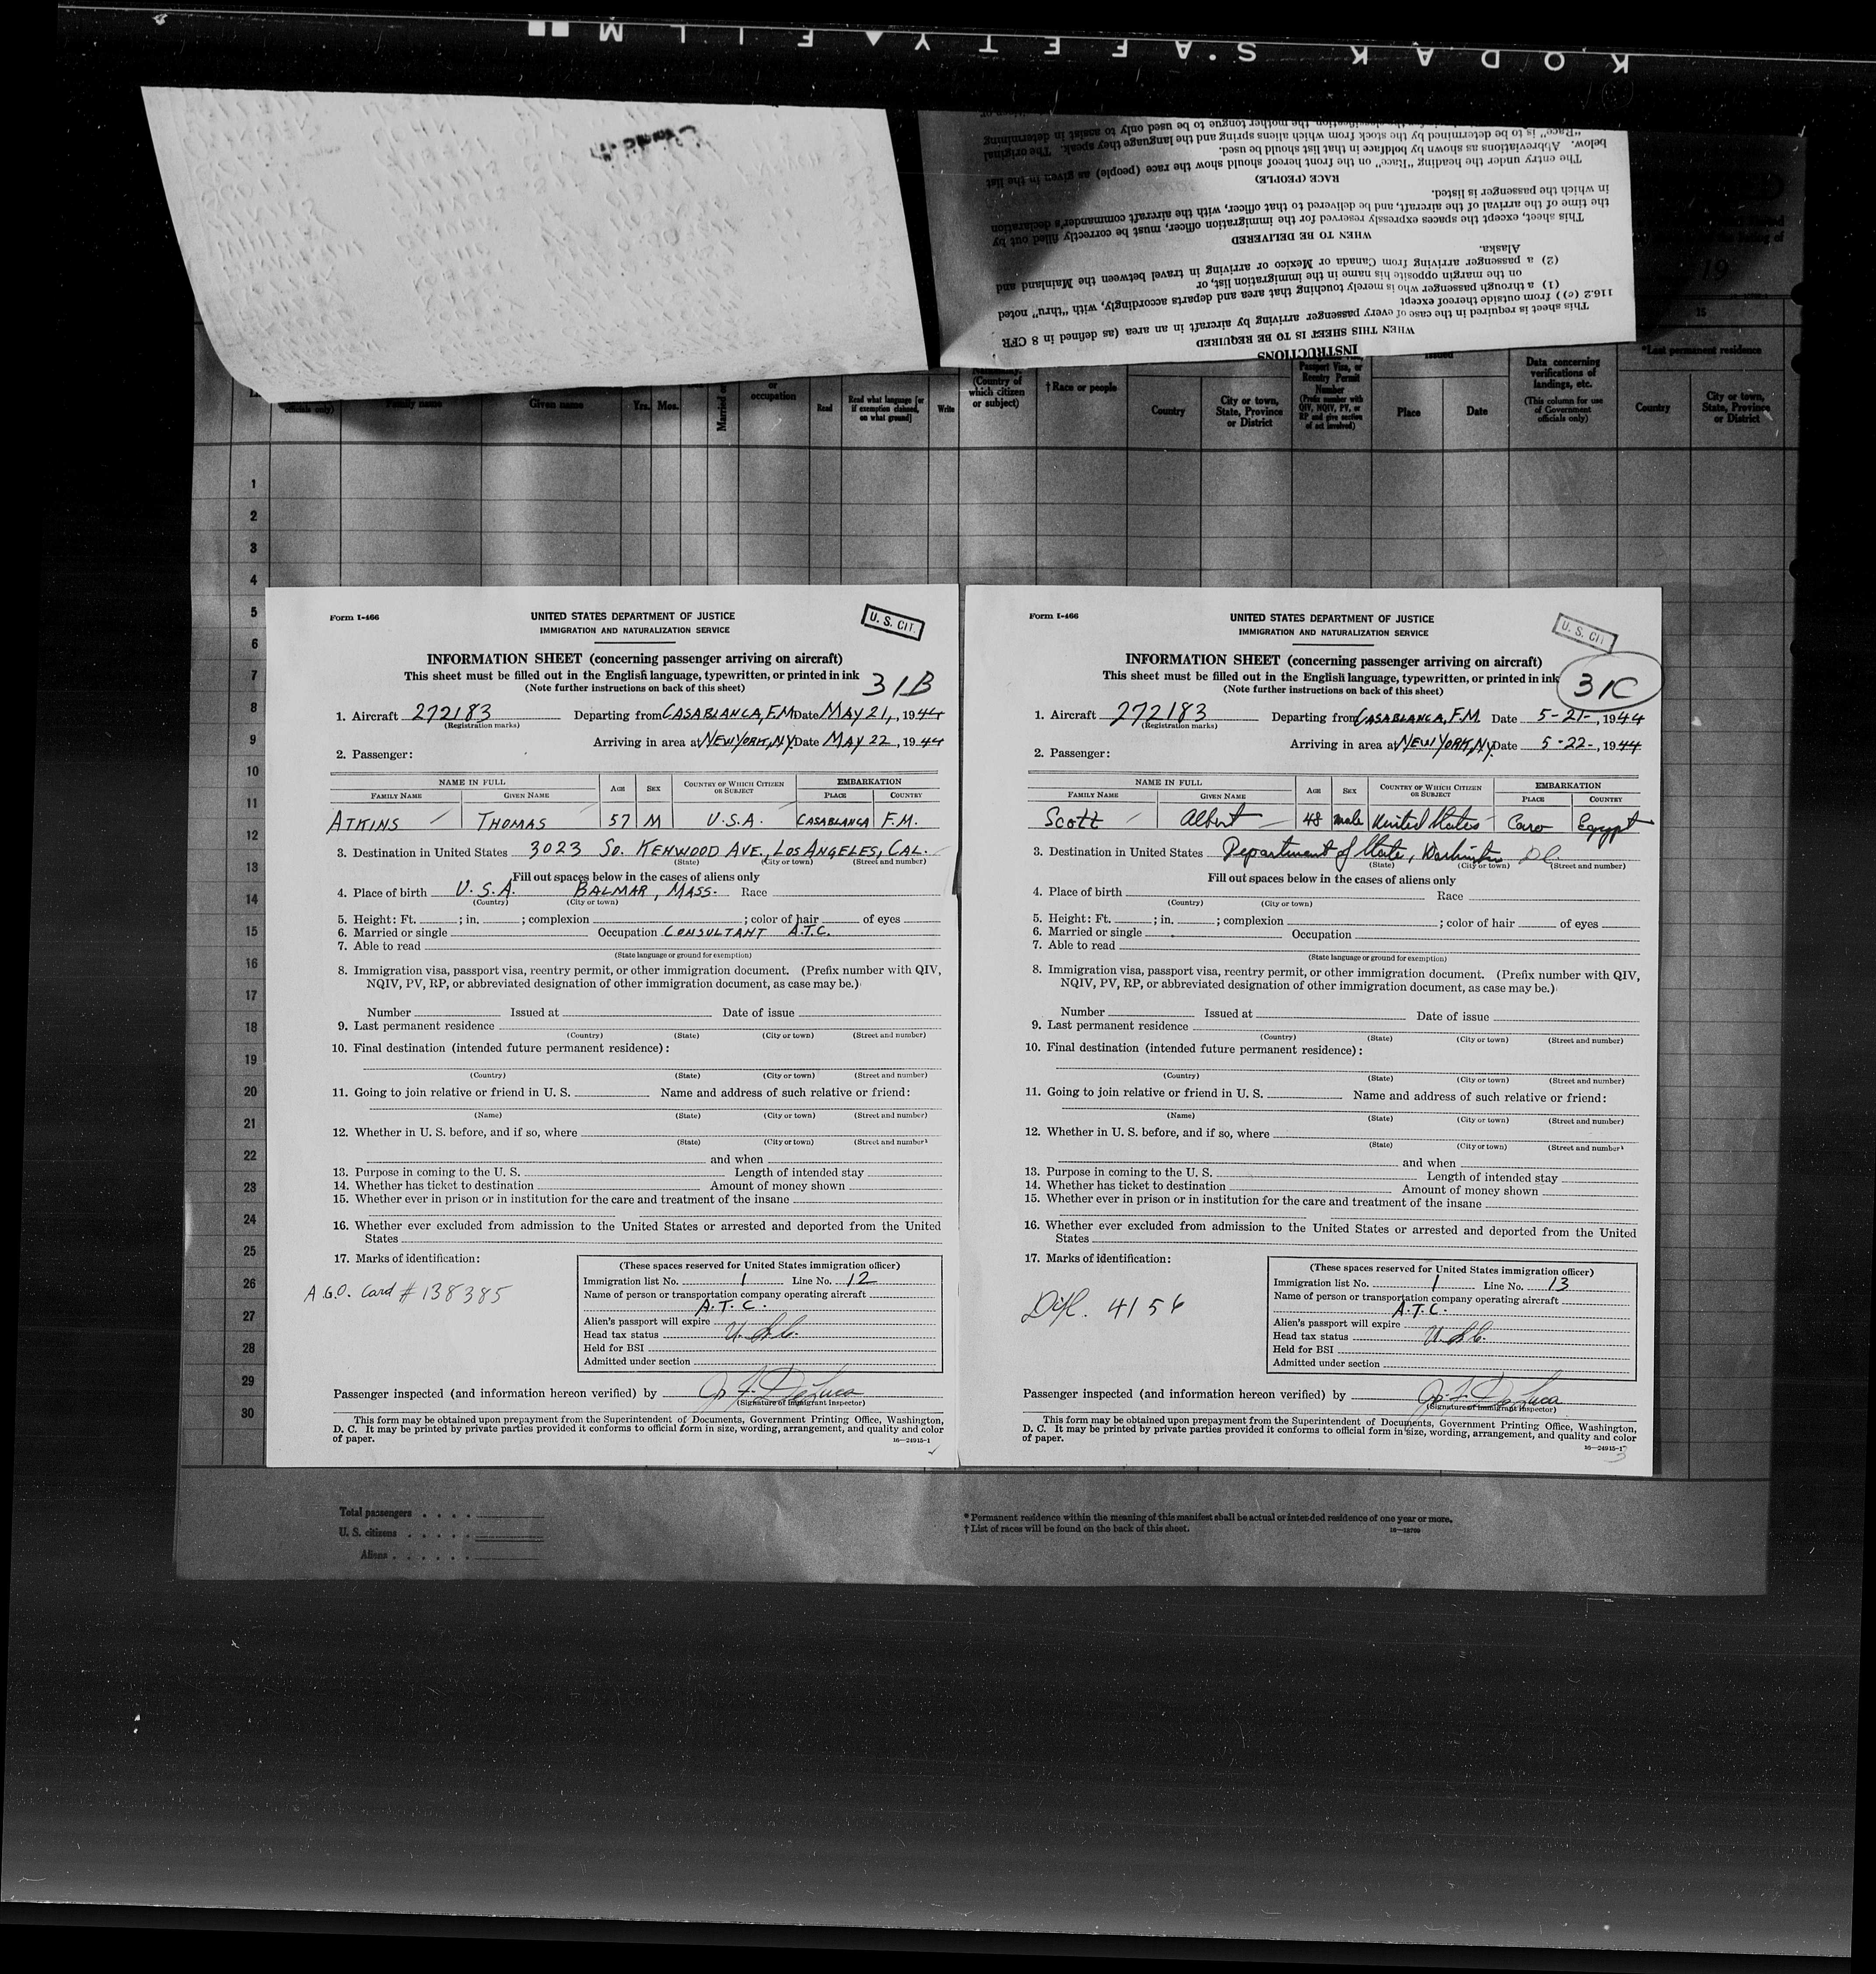 KODAK SAFETY FILM
INSTRUCTIONS
WHEN THIS SHEET IS TO BE REQUIRED
This sheet is required in the case of every passenger arriving by aircraft in an area (as defined in 8 CFR
116.2 (c)) from outside thereof except
(1) a through passenger who is merely touching that area and departs accordingly, with "thru" noted
on the margin opposite his name in the immigration list, or
(2) a passenger arriving from Canada or Mexico or arriving in travel between the Mainland and
Alaska.
WHEN TO BE DELIVERED
This sheet, except the spaces expressly reserved for the immigration officer, must be correctly filled out by
the time of the arrival of the aircraft, and be delivered to that officer, with the aircraft commander's declaration
in which the passenger is listed.
RACE (PEOPLE)
The entry under the heading "Race" on the front hereof should show the race (people) as given in the list
below. Abbreviations as shown by boldface in that list should be used.
"Race" is to be determined by the stock from which aliens spring and the language they speak. The original
the mother tongue to be used only to assist in determining
19
15
officials only)
Family name
Given name
Yrs. Mos.
Married or
or
occupation
Read
Read what language [or
if exemption claimed,
on what ground]
Write
(Country of
which citizen
or subject)
† Race or people
Country
City or town,
State, Province
or District
Passport Visa, or
Reentry Permit
Number
(Prefix number with
QIV, NQIV, PV, or
RP and give section
of act involved)
Issued
Place
Date
Data concerning
verifications of
landings, etc.
(This column for use
of Government
officials only)
*Last permanent residence
Country
City or town,
State, Province
or District
1
2
3
4
5
6
7
8
9
10
11
12
13
14
15
16
17
18
19
20
21
22
23
24
25
26
27
28
29
30
Form I-466
UNITED STATES DEPARTMENT OF JUSTICE
IMMIGRATION AND NATURALIZATION SERVICE
U. S. CIT.
INFORMATION SHEET (concerning passenger arriving on aircraft)
This sheet must be filled out in the English language, typewritten, or printed in ink
(Note further instructions on back of this sheet)
31B
1. Aircraft 272183 Departing from CASABLANCA, F.M. Date MAY 21, , 1944
(Registration marks)
Arriving in area at NEW YORK, NY Date MAY 22 , 1944
2. Passenger:
NAME IN FULL
FAMILY NAME GIVEN NAME
AGE SEX COUNTRY OF WHICH CITIZEN OR SUBJECT
EMBARKATION
PLACE COUNTRY
ATKINS THOMAS 57 M U.S.A. CASABLANCA F.M.
3. Destination in United States 3023 SO. KENWOOD AVE., LOS ANGELES, CAL.
(State) (City or town) (Street and number)
Fill out spaces below in the cases of aliens only
4. Place of birth U.S.A. BALMAR, MASS. Race
(Country) (City or town)
5. Height: Ft. ; in. ; complexion ; color of hair of eyes
6. Married or single Occupation CONSULTANT A.T.C.
7. Able to read
(State language or ground for exemption)
8. Immigration visa, passport visa, reentry permit, or other immigration document. (Prefix number with QIV,
NQIV, PV, RP, or abbreviated designation of other immigration document, as case may be.)
Number Issued at Date of issue
9. Last permanent residence
(Country) (State) (City or town) (Street and number)
10. Final destination (intended future permanent residence):
(Country) (State) (City or town) (Street and number)
11. Going to join relative or friend in U. S. Name and address of such relative or friend:
(Name) (State) (City or town) (Street and number)
12. Whether in U. S. before, and if so, where
(State) (City or town) (Street and number)
and when
13. Purpose in coming to the U. S. Length of intended stay
14. Whether has ticket to destination Amount of money shown
15. Whether ever in prison or in institution for the care and treatment of the insane
16. Whether ever excluded from admission to the United States or arrested and deported from the United
States
17. Marks of identification:
A.G.O. Card # 138385
(These spaces reserved for United States immigration officer)
Immigration list No. 1 Line No. 12
Name of person or transportation company operating aircraft
A.T.C.
Alien's passport will expire
Head tax status U.S.C.
Held for BSI
Admitted under section
Passenger inspected (and information hereon verified) by Jo. F. DeLuca
(Signature of immigrant inspector)
This form may be obtained upon prepayment from the Superintendent of Documents, Government Printing Office, Washington,
D. C. It may be printed by private parties provided it conforms to official form in size, wording, arrangement, and quality and color
of paper.
16—24915-1
Form I-466
UNITED STATES DEPARTMENT OF JUSTICE
IMMIGRATION AND NATURALIZATION SERVICE
U. S. CIT
INFORMATION SHEET (concerning passenger arriving on aircraft)
This sheet must be filled out in the English language, typewritten, or printed in ink
(Note further instructions on back of this sheet)
31C
1. Aircraft 272183 Departing from CASABLANCA, F.M. Date 5-21- , 1944
(Registration marks)
Arriving in area at NEW YORK, NY. Date 5-22- , 1944
2. Passenger:
NAME IN FULL
FAMILY NAME GIVEN NAME
AGE SEX COUNTRY OF WHICH CITIZEN OR SUBJECT
EMBARKATION
PLACE COUNTRY
Scott Albert 48 male United States Cairo Egypt
3. Destination in United States Department of State, Washington DC.
(State) (City or town) (Street and number)
Fill out spaces below in the cases of aliens only
4. Place of birth Race
(Country) (City or town)
5. Height: Ft. ; in. ; complexion ; color of hair of eyes
6. Married or single Occupation
7. Able to read
(State language or ground for exemption)
8. Immigration visa, passport visa, reentry permit, or other immigration document. (Prefix number with QIV,
NQIV, PV, RP, or abbreviated designation of other immigration document, as case may be.)
Number Issued at Date of issue
9. Last permanent residence
(Country) (State) (City or town) (Street and number)
10. Final destination (intended future permanent residence):
(Country) (State) (City or town) (Street and number)
11. Going to join relative or friend in U. S. Name and address of such relative or friend:
(Name) (State) (City or town) (Street and number)
12. Whether in U. S. before, and if so, where
(State) (City or town) (Street and number)
and when
13. Purpose in coming to the U. S. Length of intended stay
14. Whether has ticket to destination Amount of money shown
15. Whether ever in prison or in institution for the care and treatment of the insane
16. Whether ever excluded from admission to the United States or arrested and deported from the United
States
17. Marks of identification:
Dipl. 4156
(These spaces reserved for United States immigration officer)
Immigration list No. 1 Line No. 13
Name of person or transportation company operating aircraft
A.T.C.
Alien's passport will expire
Head tax status U.S.C.
Held for BSI
Admitted under section
Passenger inspected (and information hereon verified) by Jo. F. DeLuca
(Signature of immigrant inspector)
This form may be obtained upon prepayment from the Superintendent of Documents, Government Printing Office, Washington,
D. C. It may be printed by private parties provided it conforms to official form in size, wording, arrangement, and quality and color
of paper.
16—24915-1
3
Total passengers
U. S. citizens
Aliens
* Permanent residence within the meaning of this manifest shall be actual or intended residence of one year or more.
† List of races will be found on the back of this sheet.